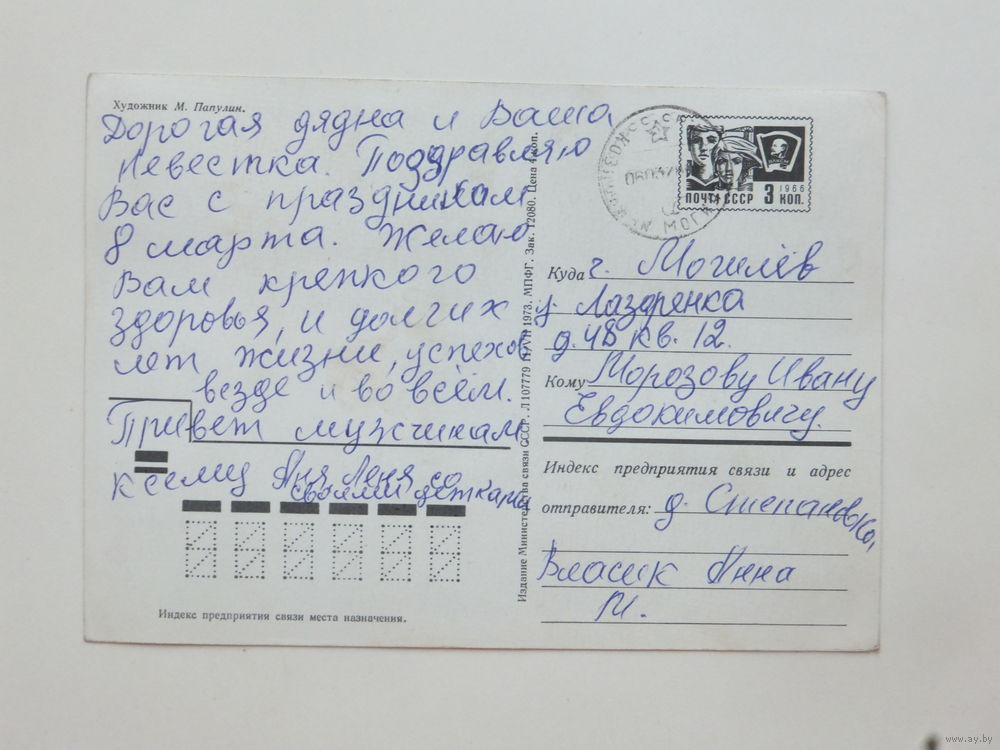 Художник М. Папулин.
Дорогая дядна и Ваша
Невестка. Поздравляю
Вас с праздником
8 марта. Желаю
Вам крепкого
здоровья, и долгих
лет жизни, успехов
везде и во всём.
Привет мужчинам
к сему Аня Леня со
своими детками
Индекс предприятия связи места назначения.
Издание Министерства связи СССР. Л 107779 11/VII 1973. МПФГ. Зак. 12080. Цена 4 коп.
ПОЧТА СССР 3 КОП.
1966
Куда г. Могилёв
у Лазаренка
д. 48 кв. 12.
Кому Морозову Ивану
Евдокимовичу.
Индекс предприятия связи и адрес
отправителя: д. Степановка,
Власик Анна
М.
www.ay.by